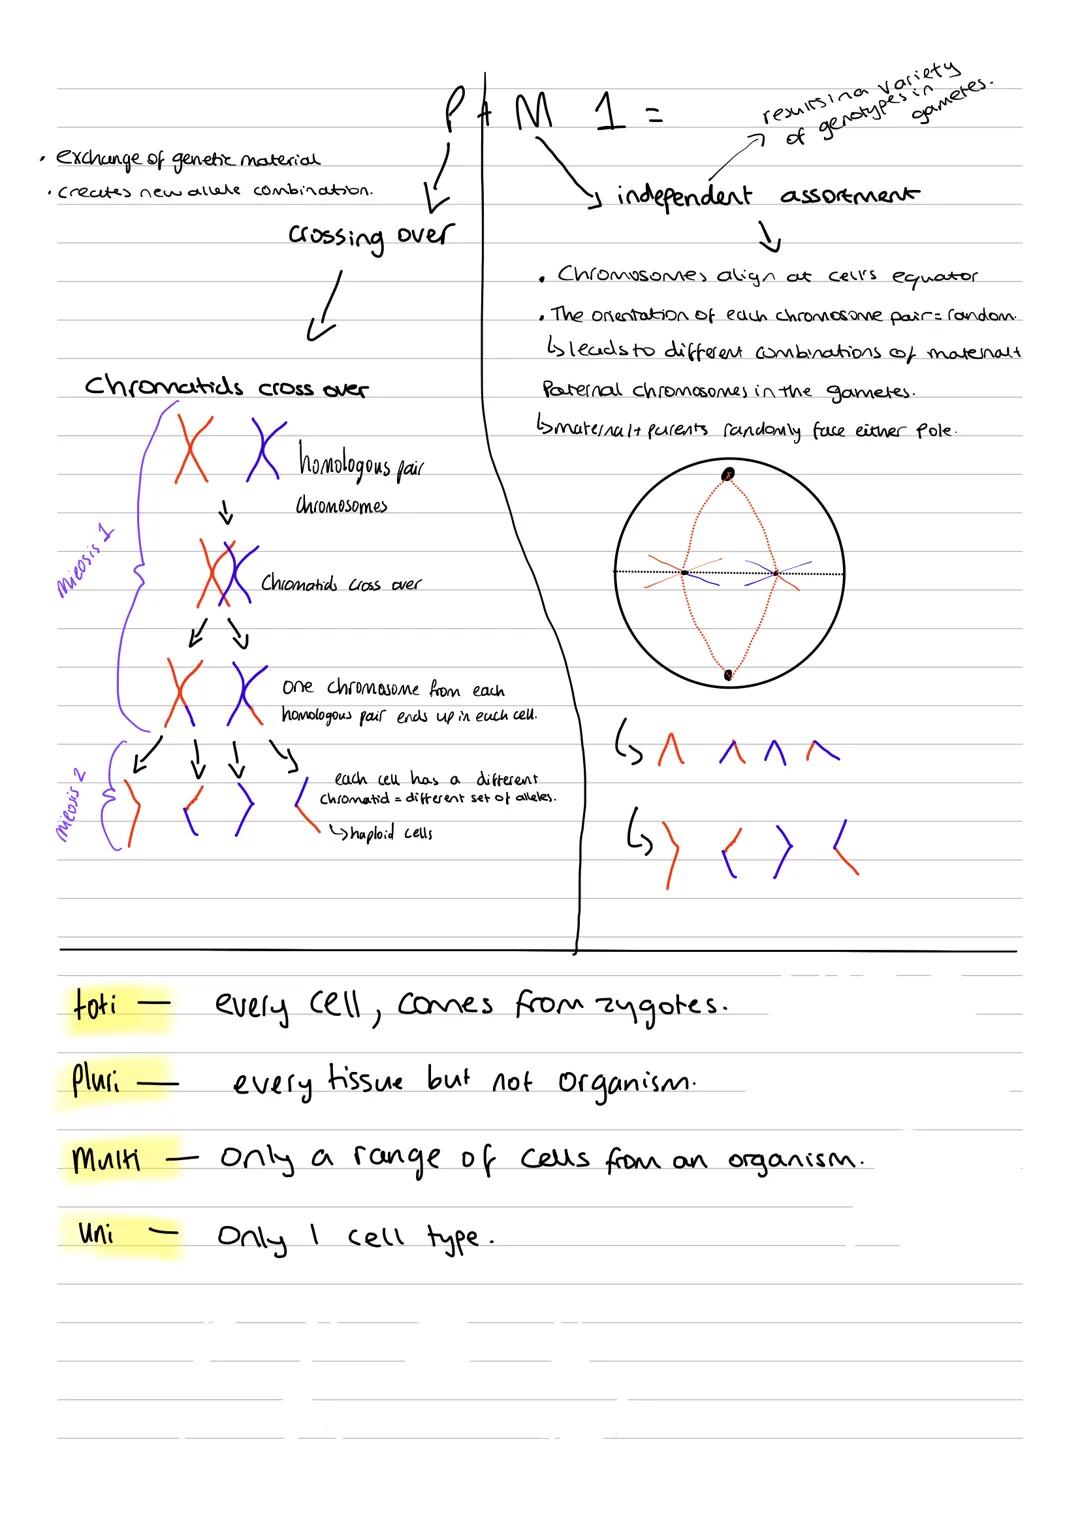 P + M 1 =
results in a variety
of genotypes in
gametes.
• exchange of genetic material
• creates new allele combination.
crossing over
Chromatids cross over
homologous pair
chromosomes
Chromatids cross over
one chromosome from each
homologous pair ends up in each cell.
each cell has a different
chromatid = different set of alleles.
↳ haploid cells
mieosis 1
mieosis 2
independent assortment
• Chromosomes align at cell's equator
• The orientation of each chromosome pair = random.
↳ leads to different combinations of maternal +
Paternal chromosomes in the gametes.
↳ maternal + parents randomly face either Pole.
toti — every cell, comes from zygotes.
Pluri — every tissue but not organism.
Multi — Only a range of cells from an organism.
Uni — Only 1 cell type.